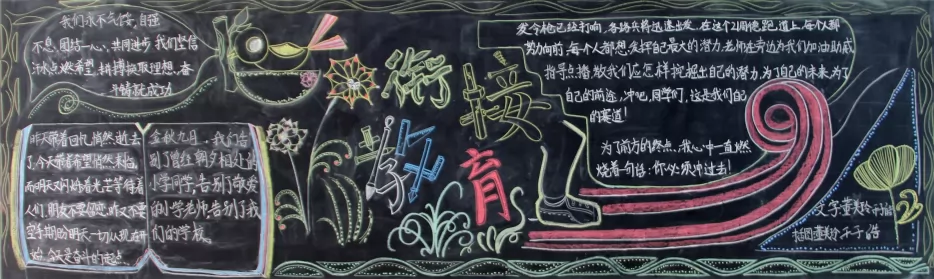 我们永不气馁,自强
不息,团结一心,共同进步.我们坚信
汗水点燃希望,拼搏换取理想,奋
斗铸就成功
昨天带着回忆悄然逝去
了,今天带着希望悄然来临,
而明天又闪烁着光芒等待着
人们.朋友不要留恋昨天不要
空手期盼明天一切从现在开
始.今天是奋斗的起点
金秋九月,我们告
别了曾经朝夕相处的
小学同学,告别了敬爱
的小学老师,告别了我
们的学校。
衔接
教育
发令枪已经打响,各路兵将迅速出发,在这个21周的跑道上,每个人都
努力向前,每个人都想发挥自己最大的潜力.老师在旁边为我们加油助威
指导点播,教我们应怎样挖掘出自己的潜力,为了自己的未来,为了
自己的前途,冲吧,同学们,这是我们自己
的赛道!
为了前方的终点,我心中一直燃
烧着一句话:你必须冲过去!
文字
插图